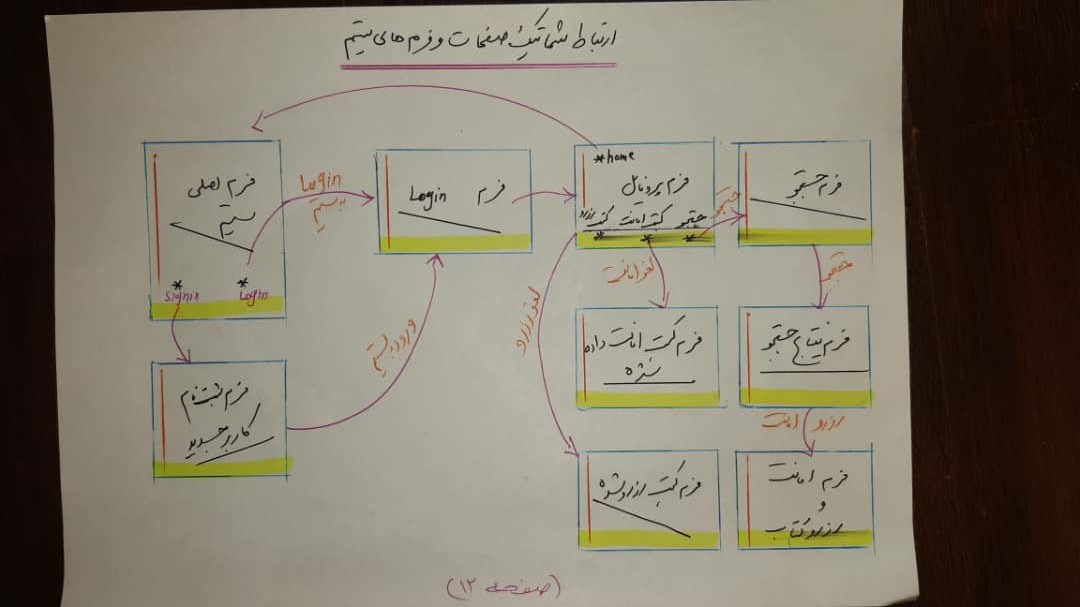 ارتباط شماتیک صفحات و فرم های سیستم
فرم اصلی
سیستم
* *
Signin Login
Login
به سیستم
فرم Login
*home
فرم پروفایل
جستجو کتب امانت کتب رزرو
* * *
جستجو
فرم جستجو
لغو امانت
جستجو
لغو رزرو
ورود به سیستم
فرم ثبت نام
کاربر جدید
فرم کتب امانت داده
شده
فرم نتایج جستجو
رزرو / امانت
فرم کتب رزرو شده
فرم امانت
و
رزرو کتاب
(صفحه ۱۲)